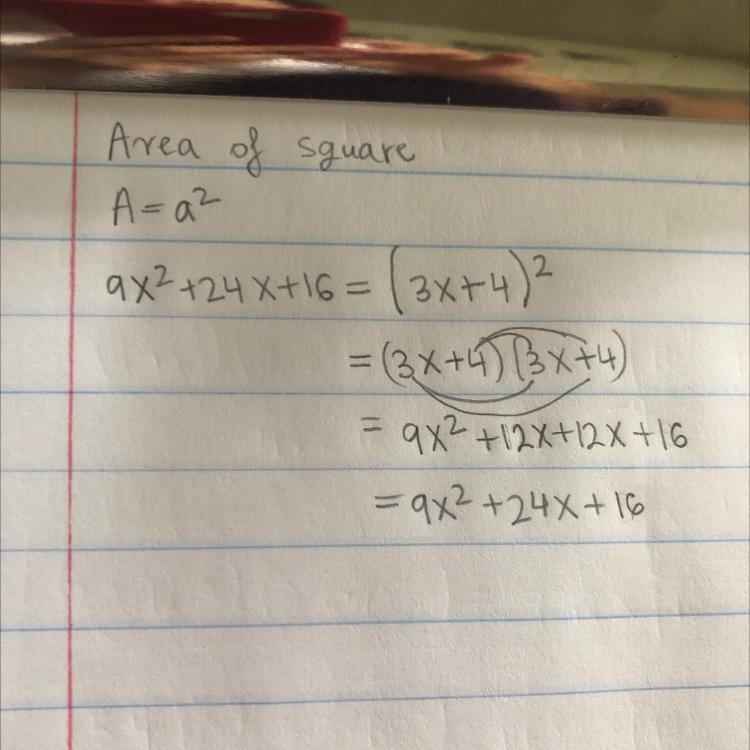 Area of square
A = a²
9x² + 24x + 16 = (3x + 4)²
= (3x + 4)(3x + 4)
= 9x² + 12x + 12x + 16
= 9x² + 24x + 16